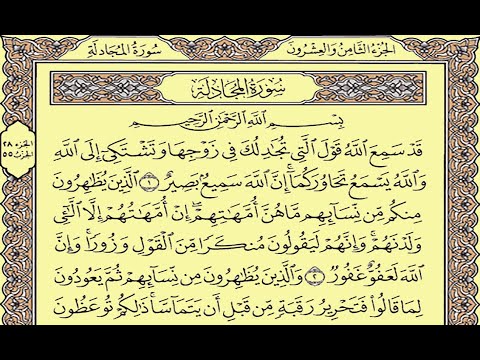 الجزء الثامن والعشرون
سورة المجادلة
الجزء ٢٨
الحزب ٥٥
سُورَةُ المُجَادلَةِ
بِسْمِ اللَّهِ الرَّحْمَٰنِ الرَّحِيمِ
قَدْ سَمِعَ ٱللَّهُ قَوْلَ ٱلَّتِي تُجَٰدِلُكَ فِي زَوْجِهَا وَتَشْتَكِيٓ إِلَى ٱللَّهِ
وَٱللَّهُ يَسْمَعُ تَحَاوُرَكُمَآ إِنَّ ٱللَّهَ سَمِيعُۢ بَصِيرٌ ١ ٱلَّذِينَ يُظَٰهِرُونَ
مِنكُم مِّن نِّسَآئِهِم مَّا هُنَّ أُمَّهَٰتِهِمْ إِنْ أُمَّهَٰتُهُمْ إِلَّا ٱلَّٰٓـِٔي
وَلَدْنَهُمْ وَإِنَّهُمْ لَيَقُولُونَ مُنكَرًا مِّنَ ٱلْقَوْلِ وَزُورًا وَإِنَّ
ٱللَّهَ لَعَفُوٌّ غَفُورٌ ٢ وَٱلَّذِينَ يُظَٰهِرُونَ مِن نِّسَآئِهِمْ ثُمَّ يَعُودُونَ
لِمَا قَالُوا۟ فَتَحْرِيرُ رَقَبَةٍ مِّن قَبْلِ أَن يَتَمَآسَّا ذَٰلِكُمْ تُوعَظُونَ